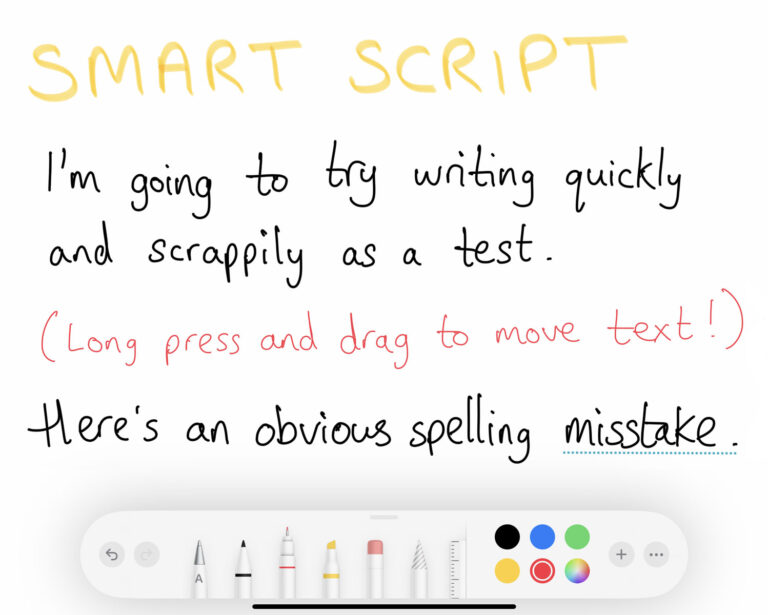 SMART SCRIPT
I'm going to try writing quickly
and scrappily as a test.
(Long press and drag to move text!)
Here's an obvious spelling misstake.
A